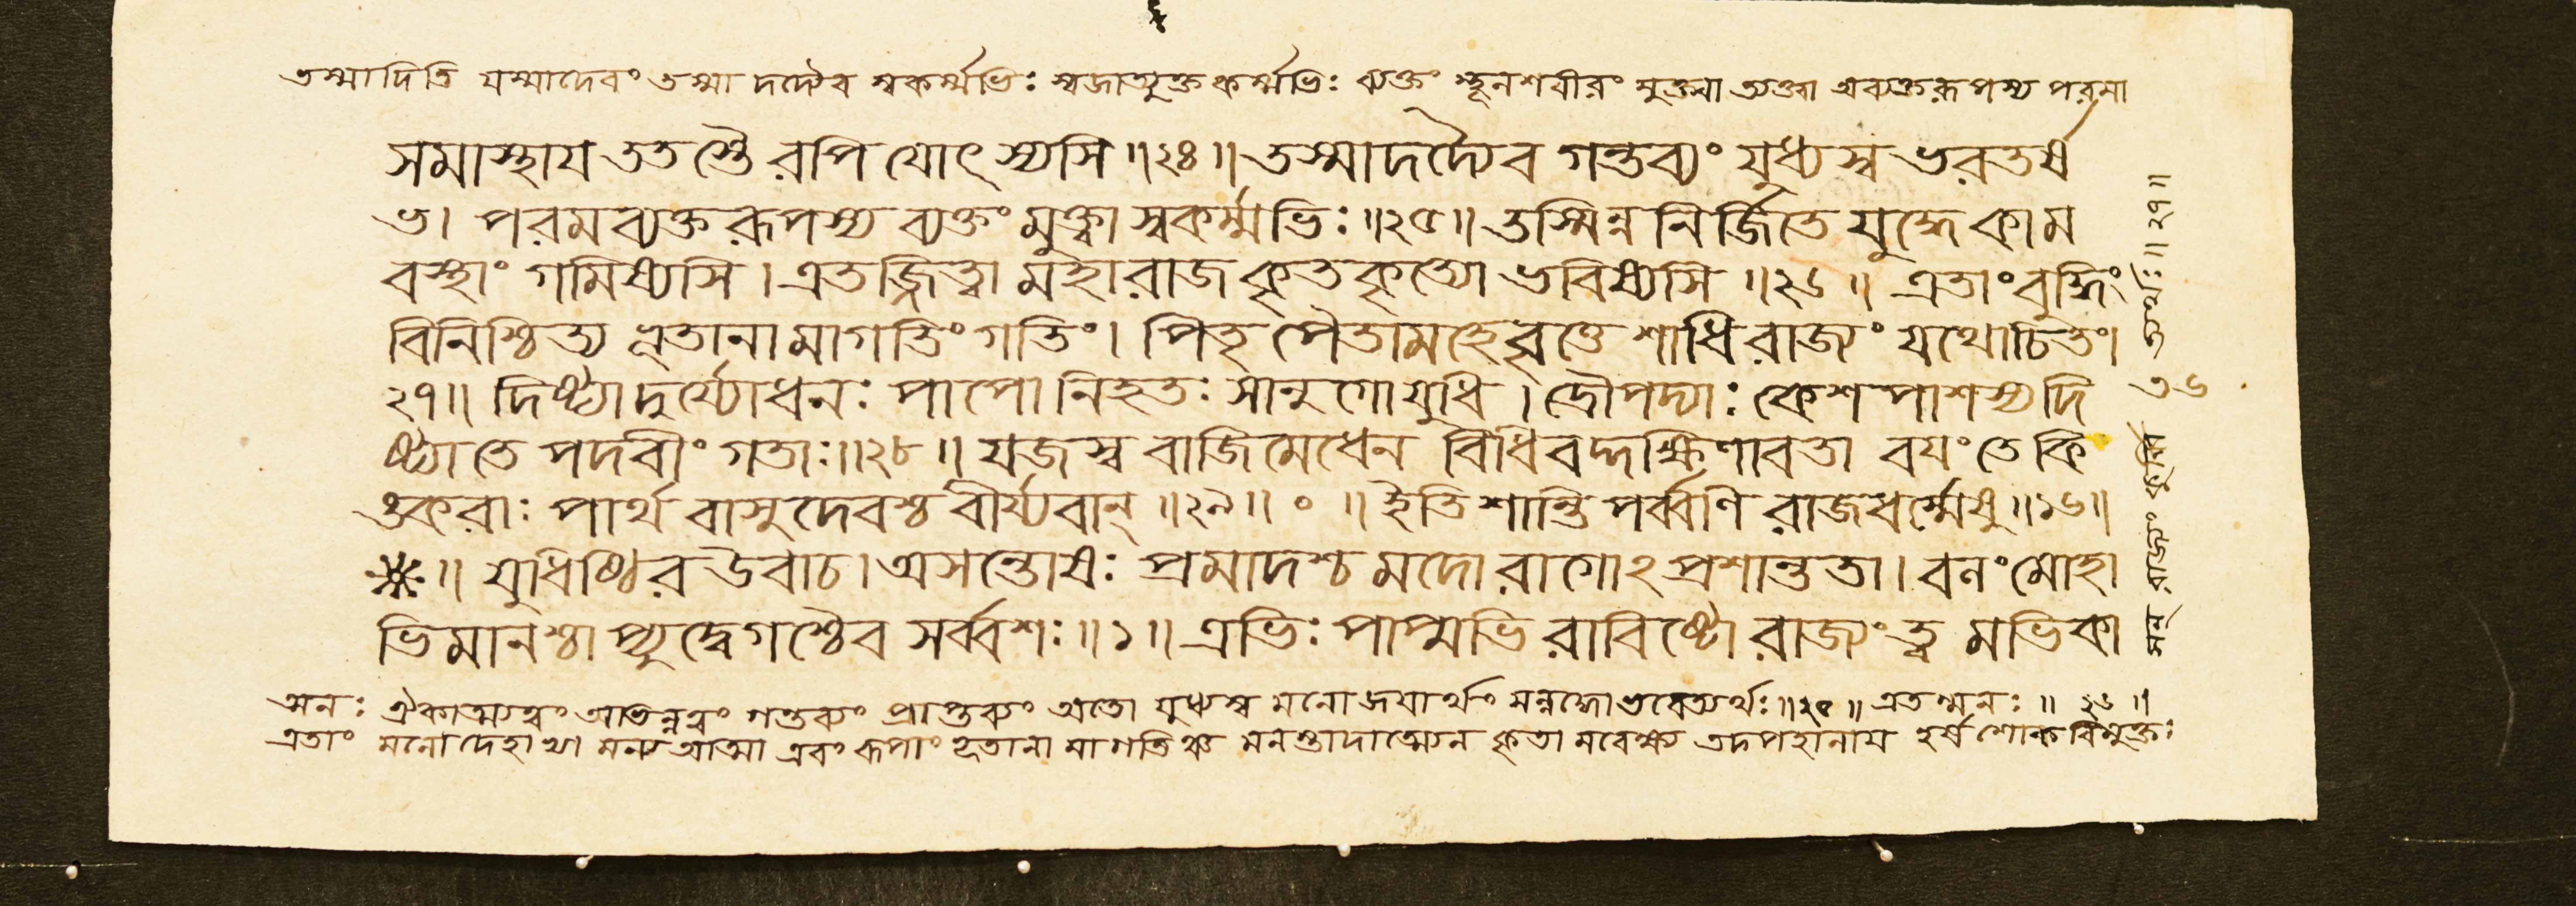 তস্মাদিতি যস্মাদেবং তস্মা দদ্যৈব স্বকর্ম্মভিঃ স্বজাত্যুক্তকর্ম্মভিঃ ব্যক্তং স্থূলশরীরং মুক্ত্বা ত্যক্ত্বা অব্যক্তরূপস্য পরমা
সমাস্থায ততস্তৈ রপি যোৎস্যসি ॥২৪॥ তস্মাদদ্যৈব গন্তব্যং যুধ্যস্ব ভরতর্ষ
ভ। পরমব্যক্তরূপস্য ব্যক্তং মুক্ত্বা স্বকর্ম্মভিঃ ॥২৫॥ তস্মিন্ননির্জিতে যুদ্ধে কাম
বস্থাং গমিষ্যসি। এতজ্জিত্বা মহারাজ কৃতকৃত্যো ভবিষ্যসি ॥২৬॥ এতাং বুদ্ধিং
বিনিশ্চিত্য ভূতানামাগতিং গতিং। পিতৃপৈতামহে বৃত্তে শাধি রাজ্যং যথোচিতং।
২৭॥ দিষ্ট্যা দুর্য্যোধনঃ পাপো নিহতঃ সানুগো যুধি। দ্রৌপদ্যাঃ কেশপাশস্য দি
ষ্ট্যা তে পদবীং গতাঃ॥২৮॥ যজস্ব বাজিমেধেন বিধিবদ্দক্ষিণাবতা বযং তে কি
ঙ্করাঃ পার্থ বাসুদেবশ্চ বীর্য্যবান্ ॥২৯॥ ০ ॥ ইতি শান্তিপর্ব্বণি রাজধর্ম্মেষু ॥১৬॥
॥ যুধিষ্ঠির উবাচ। অসন্তোষঃ প্রমাদশ্চ মদো রাগোঽপ্রশান্ততা। বলং মোহা
ভিমানশ্চাপ্যুদ্বেগশ্চৈব সর্ব্বশঃ ॥১॥ এভিঃ পাপ্মভিরাবিষ্টো রাজ্যং ত্বমভিকা
ত্মনঃ ঐকাত্ম্যত্বং অভিন্নত্বং গন্তব্যং প্রাপ্তব্যং অতো যুধ্যস্ব মনোজযার্থং সন্নদ্ধো ভবেত্যর্থঃ ॥২৫॥ এতন্মনঃ ॥ ২৬ ॥
এতাং মনোদেহাখ্যা মন্য আত্মা এবংরূপাং ভূতানা মাগতিঞ্চ মনস্তাদাত্ম্যেন কৃতা মবেক্ষ্য তদপহানায হর্ষশোকবিমুক্তঃ
সন্ রাজ্যং কুর্ব্বি
৩৬
ত্যর্থঃ॥ ২৭॥